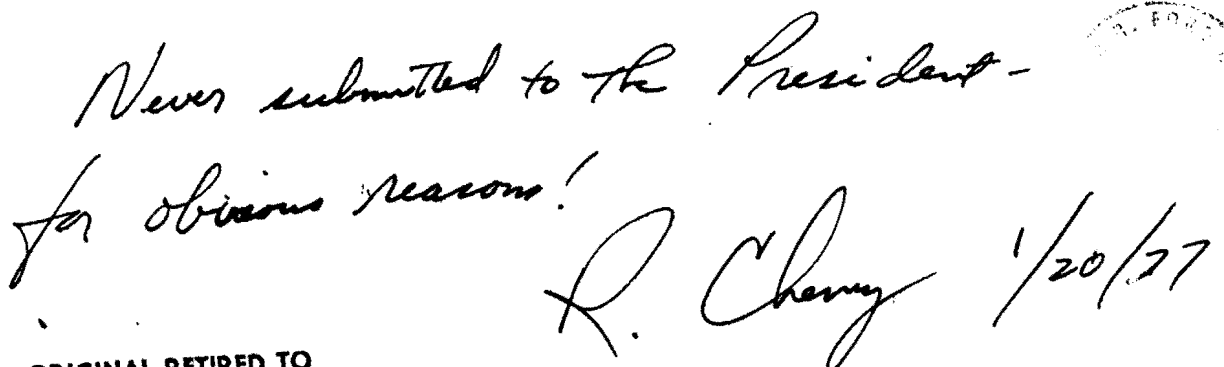 Never submitted to the President-
for obvious reasons!
R. Cheney 1/20/77
ORIGINAL RETIRED TO